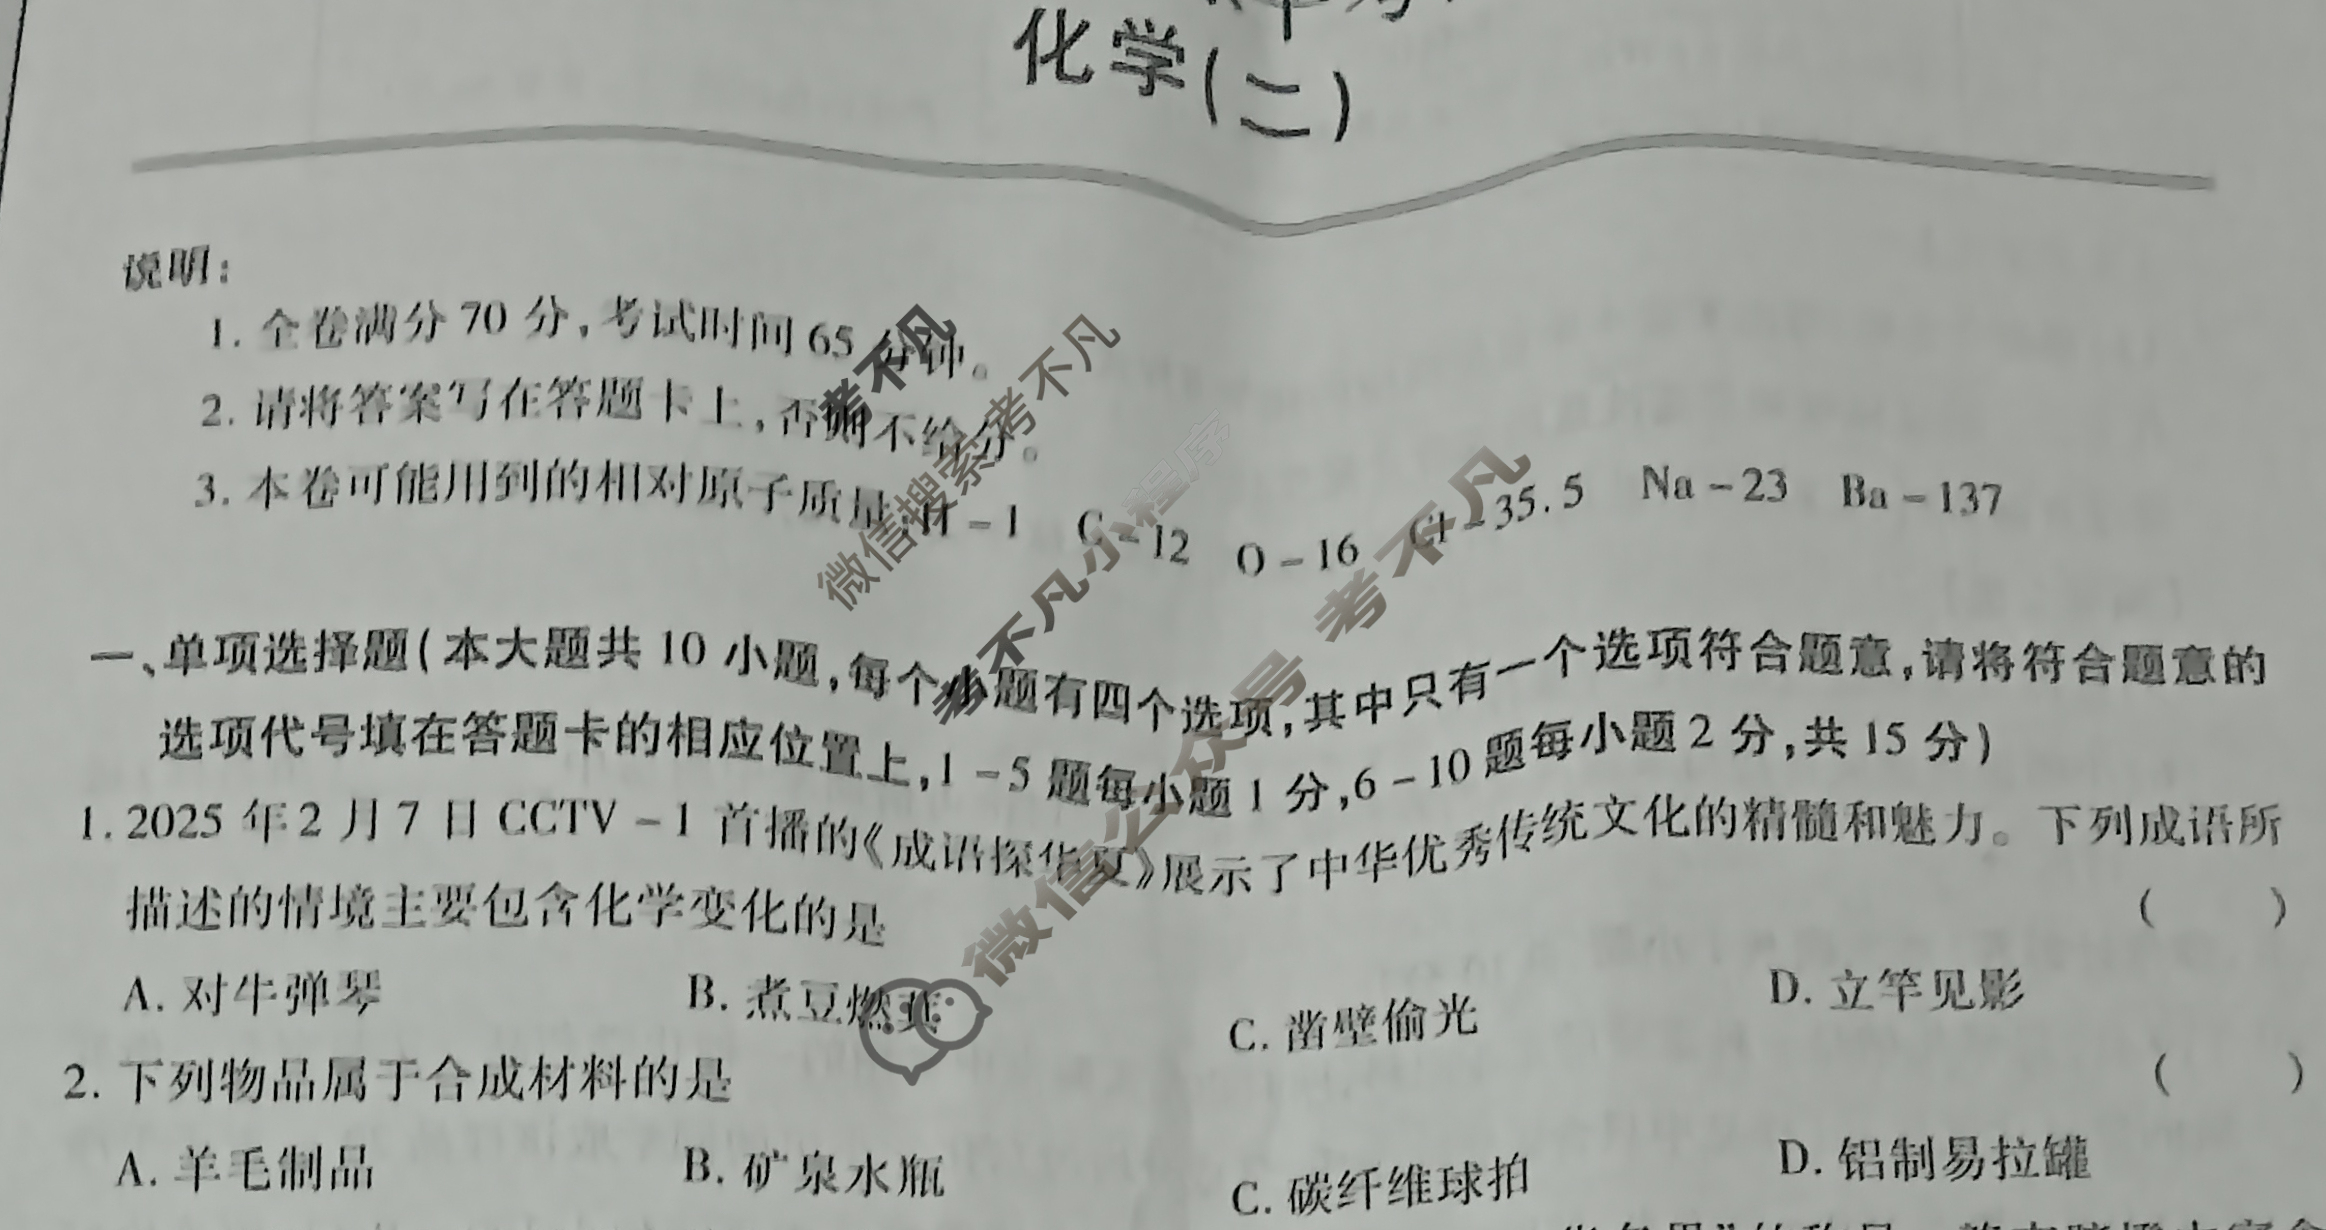 化学(二)
说明:
1. 全卷满分 70 分,考试时间 65 分钟。
2. 请将答案写在答题卡上,否则不给分。
3. 本卷可能用到的相对原子质量:H-1 C-12 O-16 Cl-35.5 Na-23 Ba-137
一、单项选择题(本大题共 10 小题,每个小题有四个选项,其中只有一个选项符合题意,请将符合题意的
选项代号填在答题卡的相应位置上,1-5 题每小题 1 分,6-10 题每小题 2 分,共 15 分)
1. 2025 年 2 月 7 日 CCTV-1 首播的《成语探华夏》展示了中华优秀传统文化的精髓和魅力。下列成语所
描述的情境主要包含化学变化的是 ( )
A. 对牛弹琴 B. 煮豆燃萁 C. 凿壁偷光 D. 立竿见影
2. 下列物品属于合成材料的是 ( )
A. 羊毛制品 B. 矿泉水瓶 C. 碳纤维球拍 D. 铝制易拉罐
考不凡
微信搜索考不凡
考不凡小程序
微信公众号 考不凡